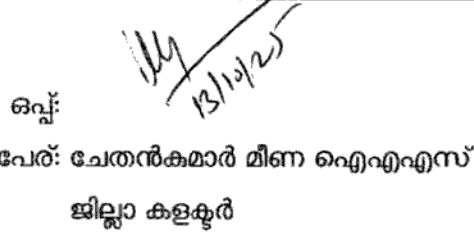 13/10/25
ഒപ്പ്:
പേര്: ചേതൻകുമാർ മീണ ഐഎഎസ്
ജില്ലാ കളക്ടർ